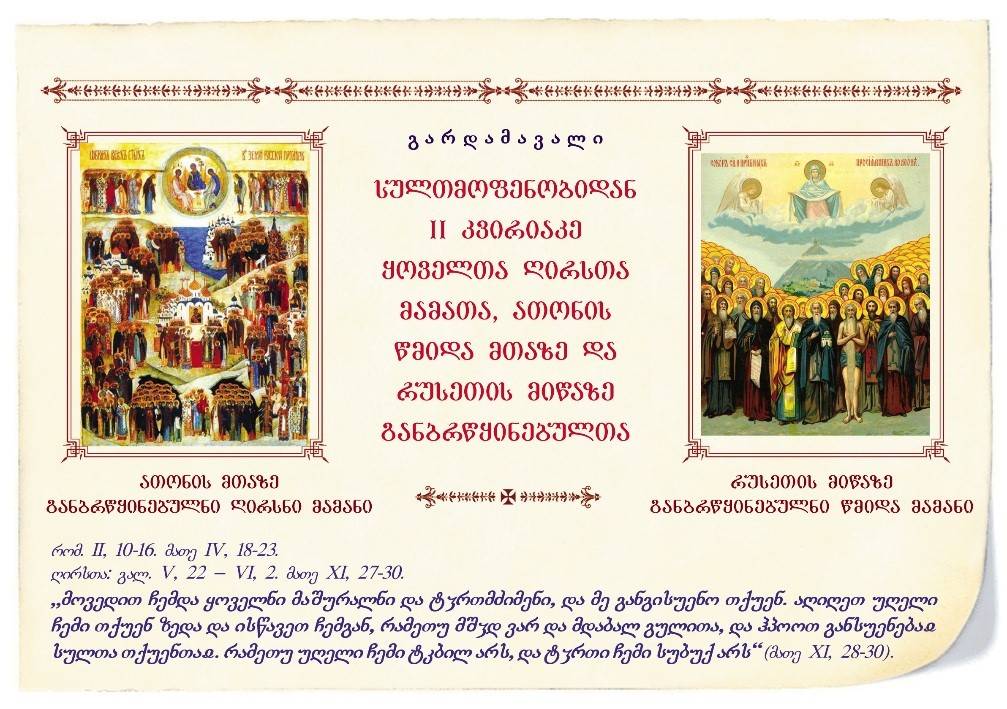 გარდამავალი
სულთმოფენობიდან
II კვირიაკე
ყოველთა ღირსთა
მამათა, ათონის
წმიდა მთაზე და
რუსეთის მიწაზე
განბრწყინებულთა
ათონის მთაზე
განბრწყინებულნი ღირსნი მამანი
რუსეთის მიწაზე
განბრწყინებულნი წმიდა მამანი
რომ. II, 10-16. მათე IV, 18-23.
ღირსთა: გალ. V, 22 – VI, 2. მათე XI, 27-30.
„მოვედით ჩემდა ყოველნი მაშურალნი და ტჳრთმძიმენი, და მე განგისუენო თქუენ. აღიღეთ უღელი
ჩემი თქუენ ზედა და ისწავეთ ჩემგან, რამეთუ მშჳდ ვარ და მდაბალ გულითა, და ჰპოოთ განსუენებაჲ
სულთა თქუენთაჲ. რამეთუ უღელი ჩემი ტკბილ არს, და ტჳრთი ჩემი სუბუქ არს“ (მათე XI, 28-30).